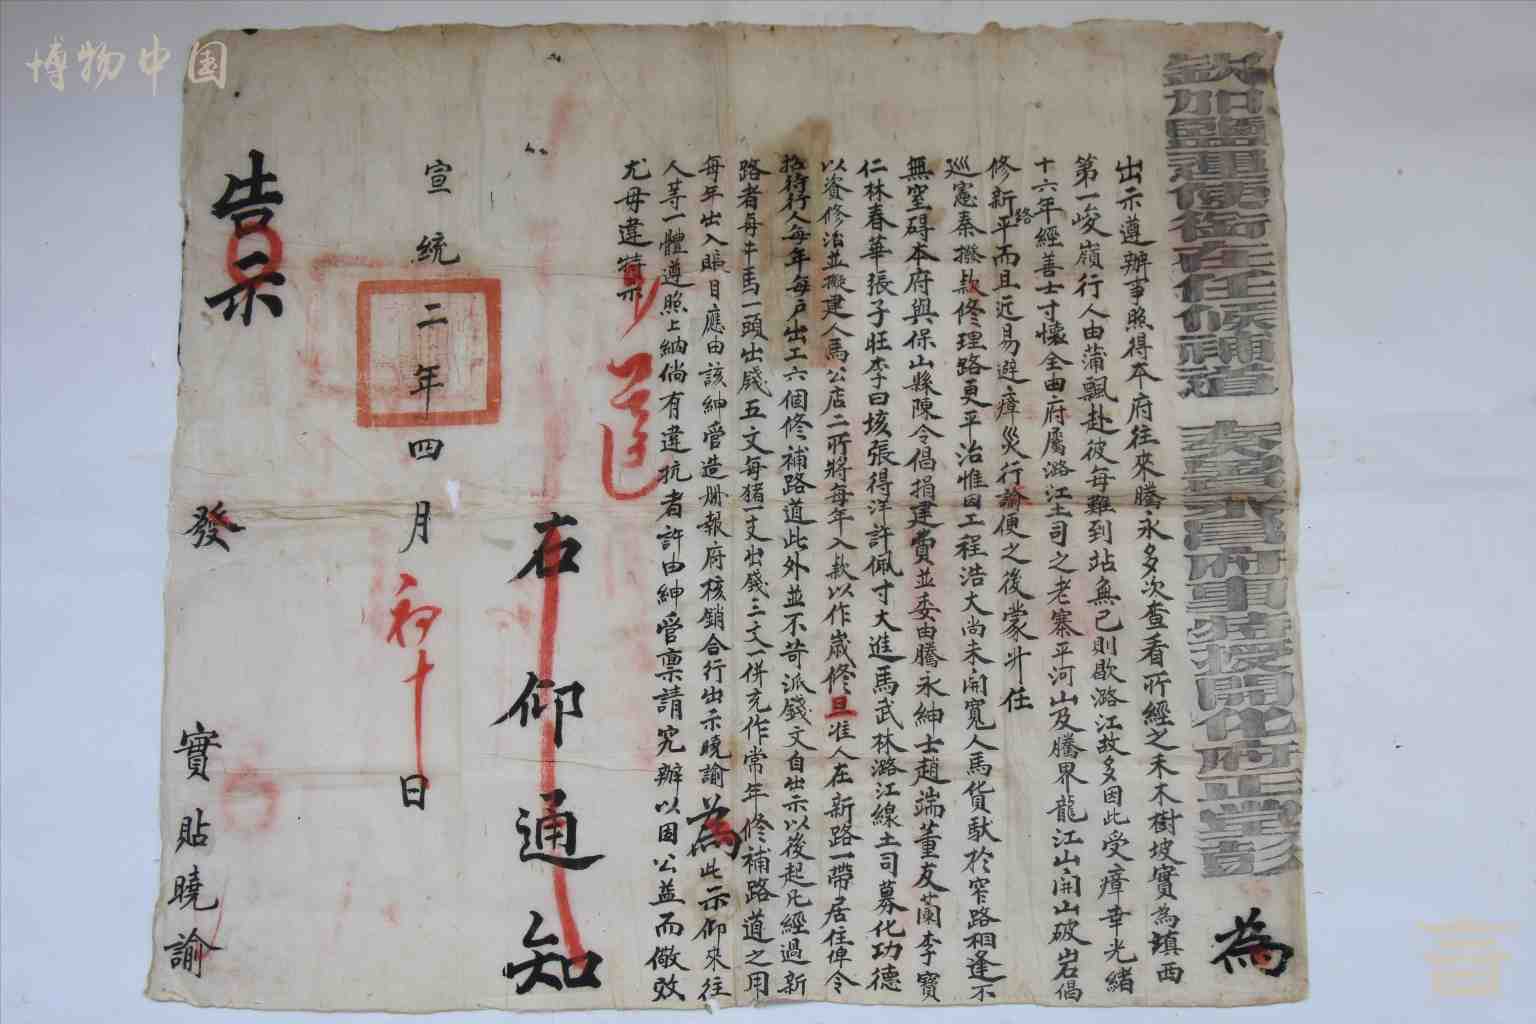 博物中国
欽加鹽運使銜在任候補道 永昌府事 開化府正堂彭 為
出示遵辦事照得本府往來騰永多次查看所經之禾木樹坡實為填西
第一峻嶺行人由蒲飄赴彼每難到站無已則歇潞江故多因此受瘴幸光緒
十六年經善士寸懷全由府屬潞江土司之老寨平河山及騰界龍江山開山破岩倡
修新路平而且近易避瘴災行諭便之後蒙升任
巡憲秦撥款修理路更平治惟因工程浩大尚未開寬人馬貨馱於窄路相逢不
無窒碍本府與保山縣陳令倡捐建賞並委由騰永紳士趙端董友蘭李寶
仁林春華張子旺李曰垓張得洋許佩寸大進馬武林潞江線土司募化功德
以資修治並擬建人馬公店二所將每年入款以作歲修且准人在新路一帶居住俾令
招待行人每年每戶出工六個修補路道此外並不苛派錢文自出示以後起凡經過新
路者每牛馬一頭出錢五文每猪一支出錢三文一併充作常年修補路道之用
每年出入賬目應由該紳管造册報府核銷合行出示曉諭為此示仰來往
人等一體遵照上納倘有違抗者許由紳管禀請究辦以固公益而儆效
尤毋違特示
遵
右仰通知
宣統二年四月初十日
告示
發 實貼曉諭